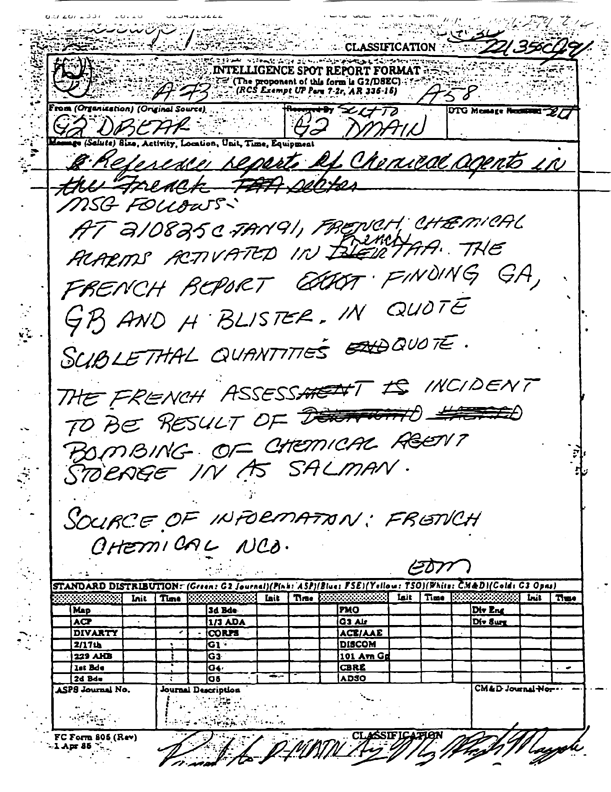 CLASSIFICATION
INTELLIGENCE SPOT REPORT FORMAT
(The proponent of this form is G2/DSEC)
(RCS Exempt UP Para 7-2r, AR 335-15)
A 73 A 58
From (Organization) (Original Source) Received By DTG Message Received
G2 DBEAR G2 DMAIN
Message (Salute) Size, Activity, Location, Unit, Time, Equipment
Reference reports of Chemical agents in
the French TAA sector
MSG FOLLOWS:
AT 210825C JAN 91, FRENCH CHEMICAL
ALARMS ACTIVATED IN French TAA. THE
FRENCH REPORT FINDING GA,
GB AND H BLISTER. IN QUOTE
SUBLETHAL QUANTITIES END QUOTE.
THE FRENCH ASSESSMENT IS INCIDENT
TO BE RESULT OF
BOMBING OF CHEMICAL AGENT
STORAGE IN AS SALMAN.
SOURCE OF INFORMATION: FRENCH
CHEMICAL NCO.
EDM
STANDARD DISTRIBUTION: (Green: G2 Journal)(Pink: ASP)(Blue: FSE)(Yellow: TSO)(White: CM&D)(Gold: G3 Opns)
Init Time Init Time Init Time Init Time
Map 3d Bde PMO Div Eng
ACP 1/3 ADA G3 Air Div Surg
DIVARTY CORPS ACE/AAE
2/17th G1 DISCOM
229 AHB G3 101 Avn Gp
1st Bde G4 CBRE
2d Bde G5 ADSO
ASPS Journal No. Journal Description CM&D Journal No.
FC Form 805 (Rev) CLASSIFICATION
1 Apr 85